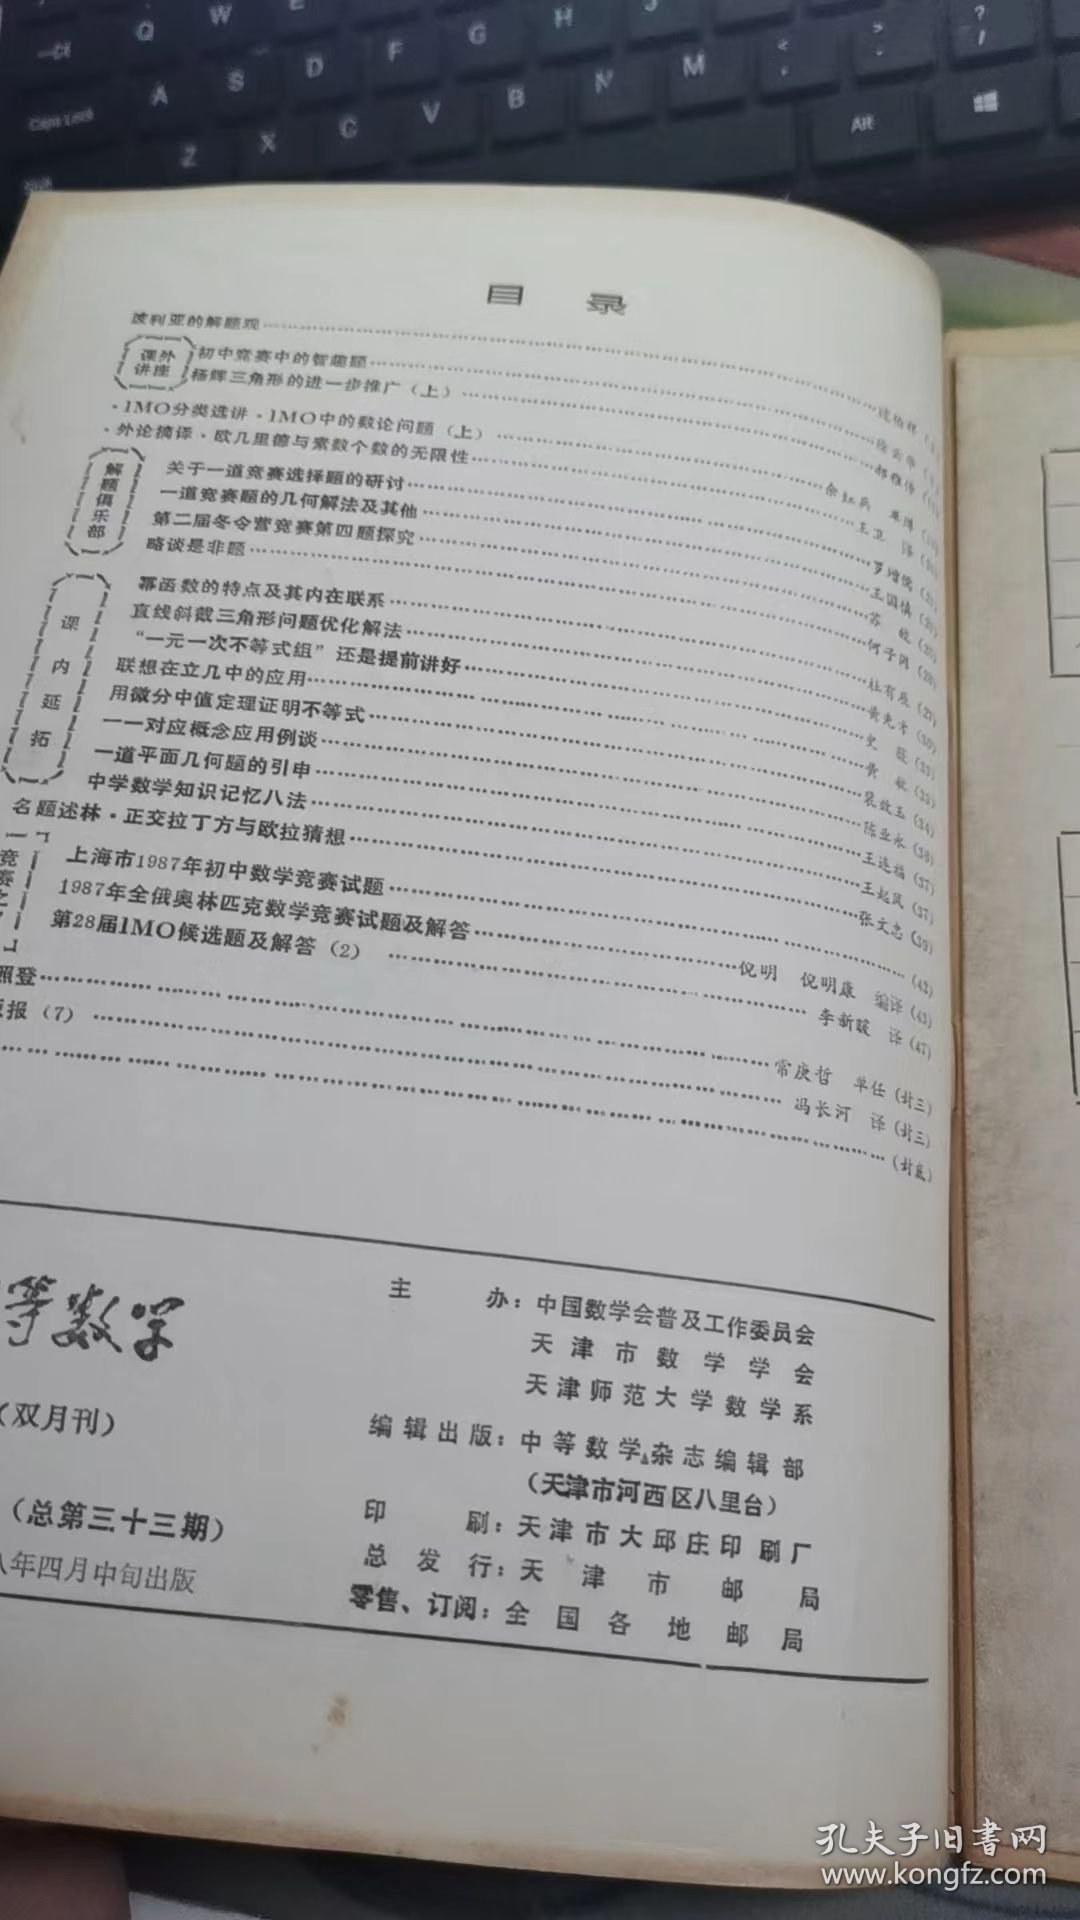 目 录
波利亚的解题观
课外讲座
初中竞赛中的智趣题
杨辉三角形的进一步推广（上）
·IMO分类选讲·IMO中的数论问题（上）
·外论摘译·欧几里德与素数个数的无限性
解题俱乐部
关于一道竞赛选择题的研讨
一道竞赛题的几何解法及其他……王国慎
第二届冬令营竞赛第四题探究
略谈是非题……何子国
课内延拓
幂函数的特点及其内在联系……杜有威
直线斜截三角形问题优化解法……黄克才（30）
“一元一次不等式组”还是提前讲好
联想在立几中的应用……黄
用微分中值定理证明不等式……裴效玉（34）
一一对应概念应用例谈……陈业永（36）
一道平面几何题的引申……王连福（37）
中学数学知识记忆八法……王起凤（37）
名题述林·正交拉丁方与欧拉猜想……张文忠（39）
竞赛之
上海市1987年初中数学竞赛试题……（42）
1987年全俄奥林匹克数学竞赛试题及解答……倪明 倪明康 编译（43）
第28届IMO候选题及解答（2）……李新暖 译（47）
照登……常庚哲 单任（封三）
报（7）……冯长河 译（封三）
……（封底）
等数学
（双月刊）
（总第三十三期）
年四月中旬出版
主 办：中国数学会普及工作委员会
天津市数学学会
天津师范大学数学系
编辑出版：中等数学杂志编辑部
（天津市河西区八里台）
印 刷：天津市大邱庄印刷厂
总 发 行：天津市邮局
零售、订阅：全国各地邮局
Q
W
E
H
J
A
S
D
F
G
Z
X
C
V
B
N
M
?
/
Caps Lock
Alt
孔夫子旧书网
www.kongfz.com